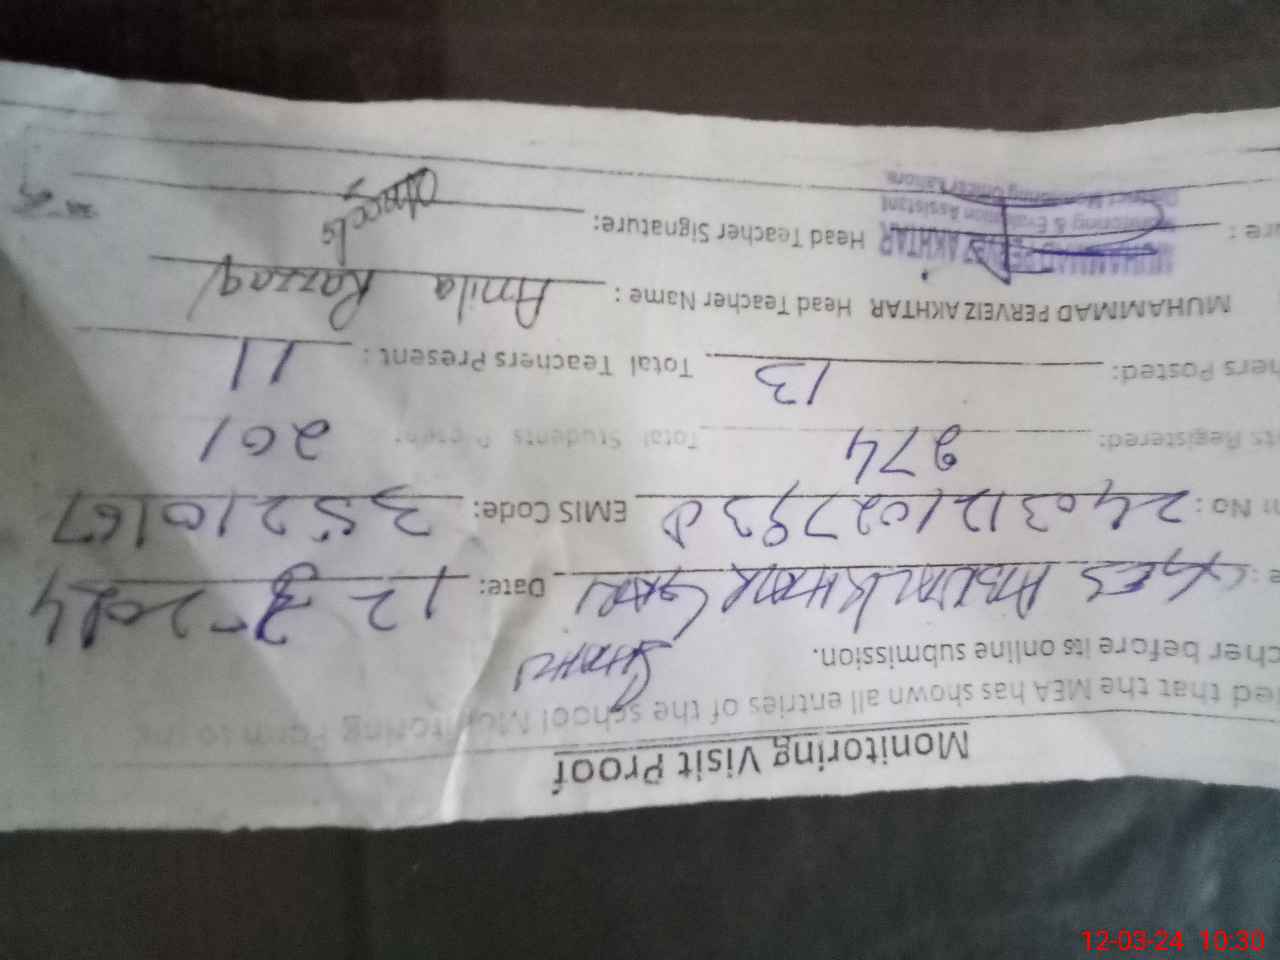 Monitoring Visit Proof
ed that the MEA has shown all entries of the school Monitoring Form to the
cher before its online submission.
e: GGES Date: 12-3-2024
n No: EMIS Code: 35210167
ts Registered: 274 Total Students Present: 201
hers Posted: 13 Total Teachers Present: 11
MUHAMMAD PERVEIZ AKHTAR Head Teacher Name: Anila Razzaq
ure: Head Teacher Signature:
MUHAMMAD PERVEIZ AKHTAR
Monitoring & Evaluation Assistant
District Monitoring Officer Lahore
12-03-24 10:30